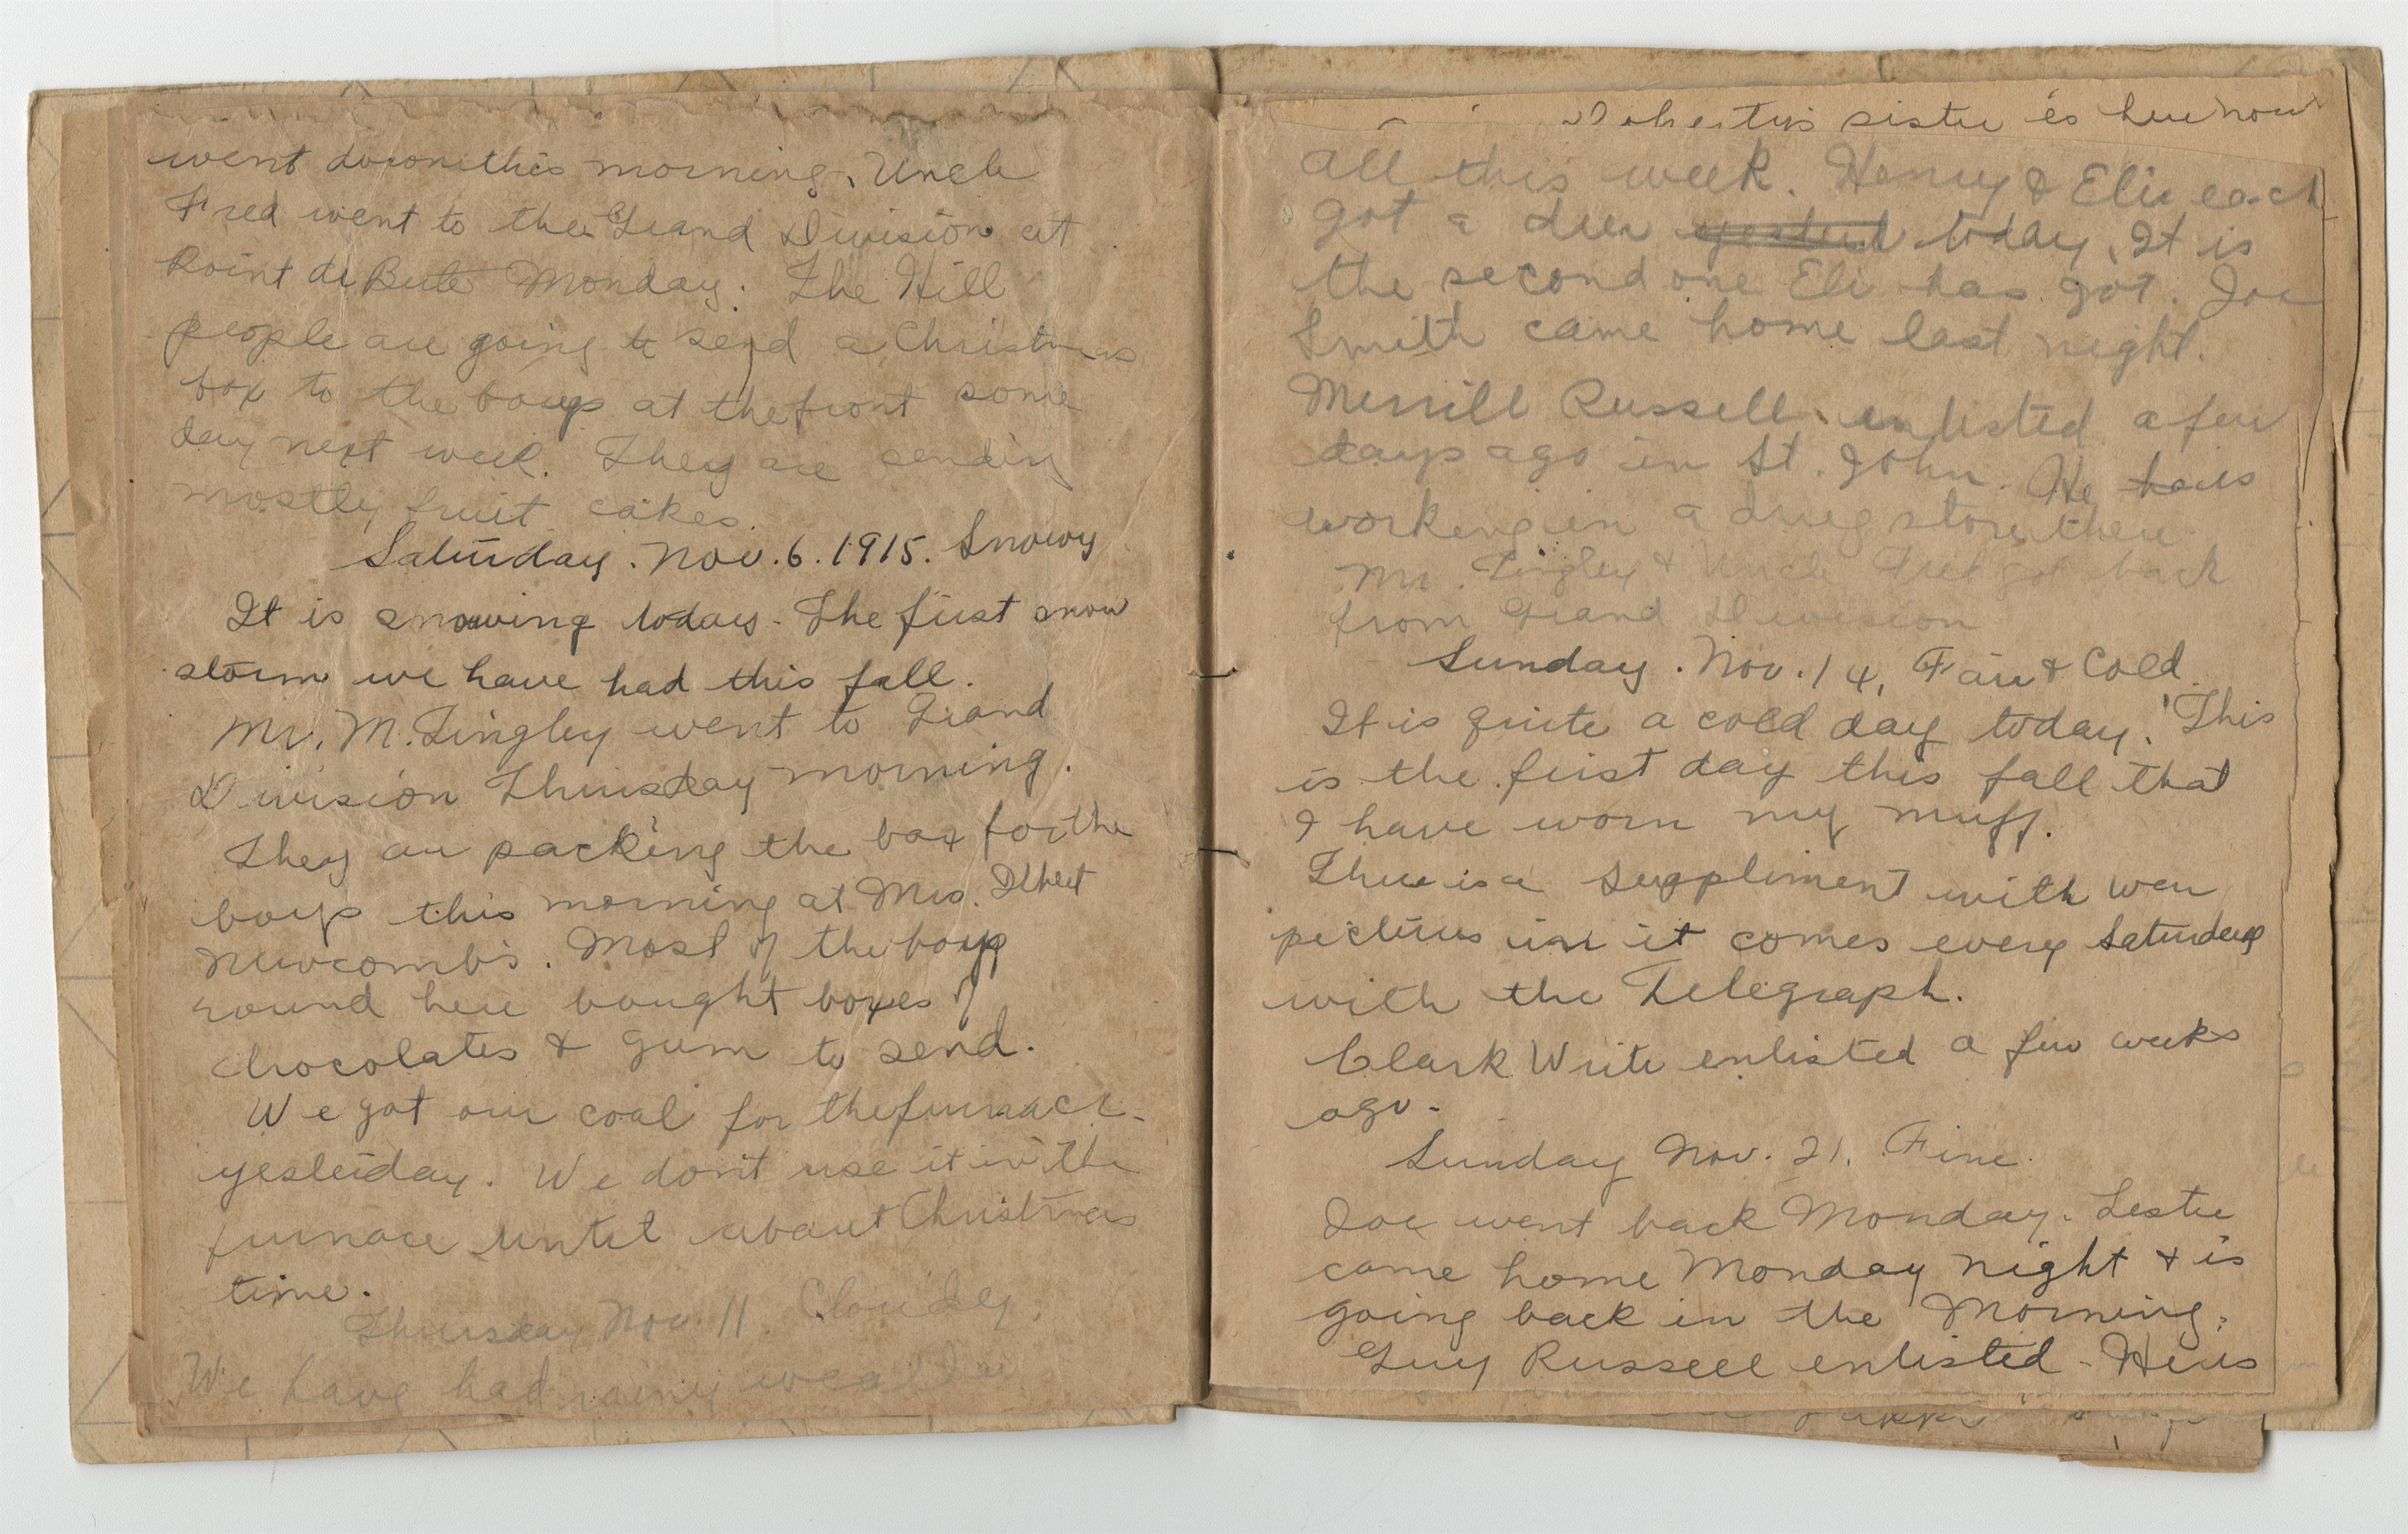 went down this morning. Uncle
Fred went to the Grand Division at
Point de Bute Monday. The Hill
people are going to send a Christmas
box to the boys at the front some
day next week. They are sending
mostly fruit cakes.
Saturday. Nov. 6. 1915. Snowy
It is snowing today. The first snow
storm we have had this fall.
Mr. M. Tingley went to Grand
Division Thursday morning.
They are packing the box for the
boys this morning at Mrs.
Newcomb's. Most of the boys
round here bought boxes of
chocolates & gum to send.
We got our coal for the furnace
yesterday. We don't use it in the
furnace until about Christmas
time.
Thursday Nov. 11. Cloudy.
We have had rainy weather
sister is here now
all this week. Henry & Eli each
got a deer yesterd today. It is
the second one Eli has got. Joe
Smith came home last night.
Merrill Russell enlisted a few
days ago in St. John. He
working in a drug store there
Mr. Tingley & Uncle Fred got back
from Grand Division
Sunday. Nov. 14. Fair & Cold.
It is quite a cold day today. This
is the first day this fall that
I have worn my muff.
There is a suppliment with war
pictures in it comes every Saturday
with the Telegraph.
Clark Write enlisted a few weeks
ago.
Sunday Nov. 21. Fine.
Joe went back Monday. Lester
came home Monday night & is
going back in the Morning.
Guy Russell enlisted. He is